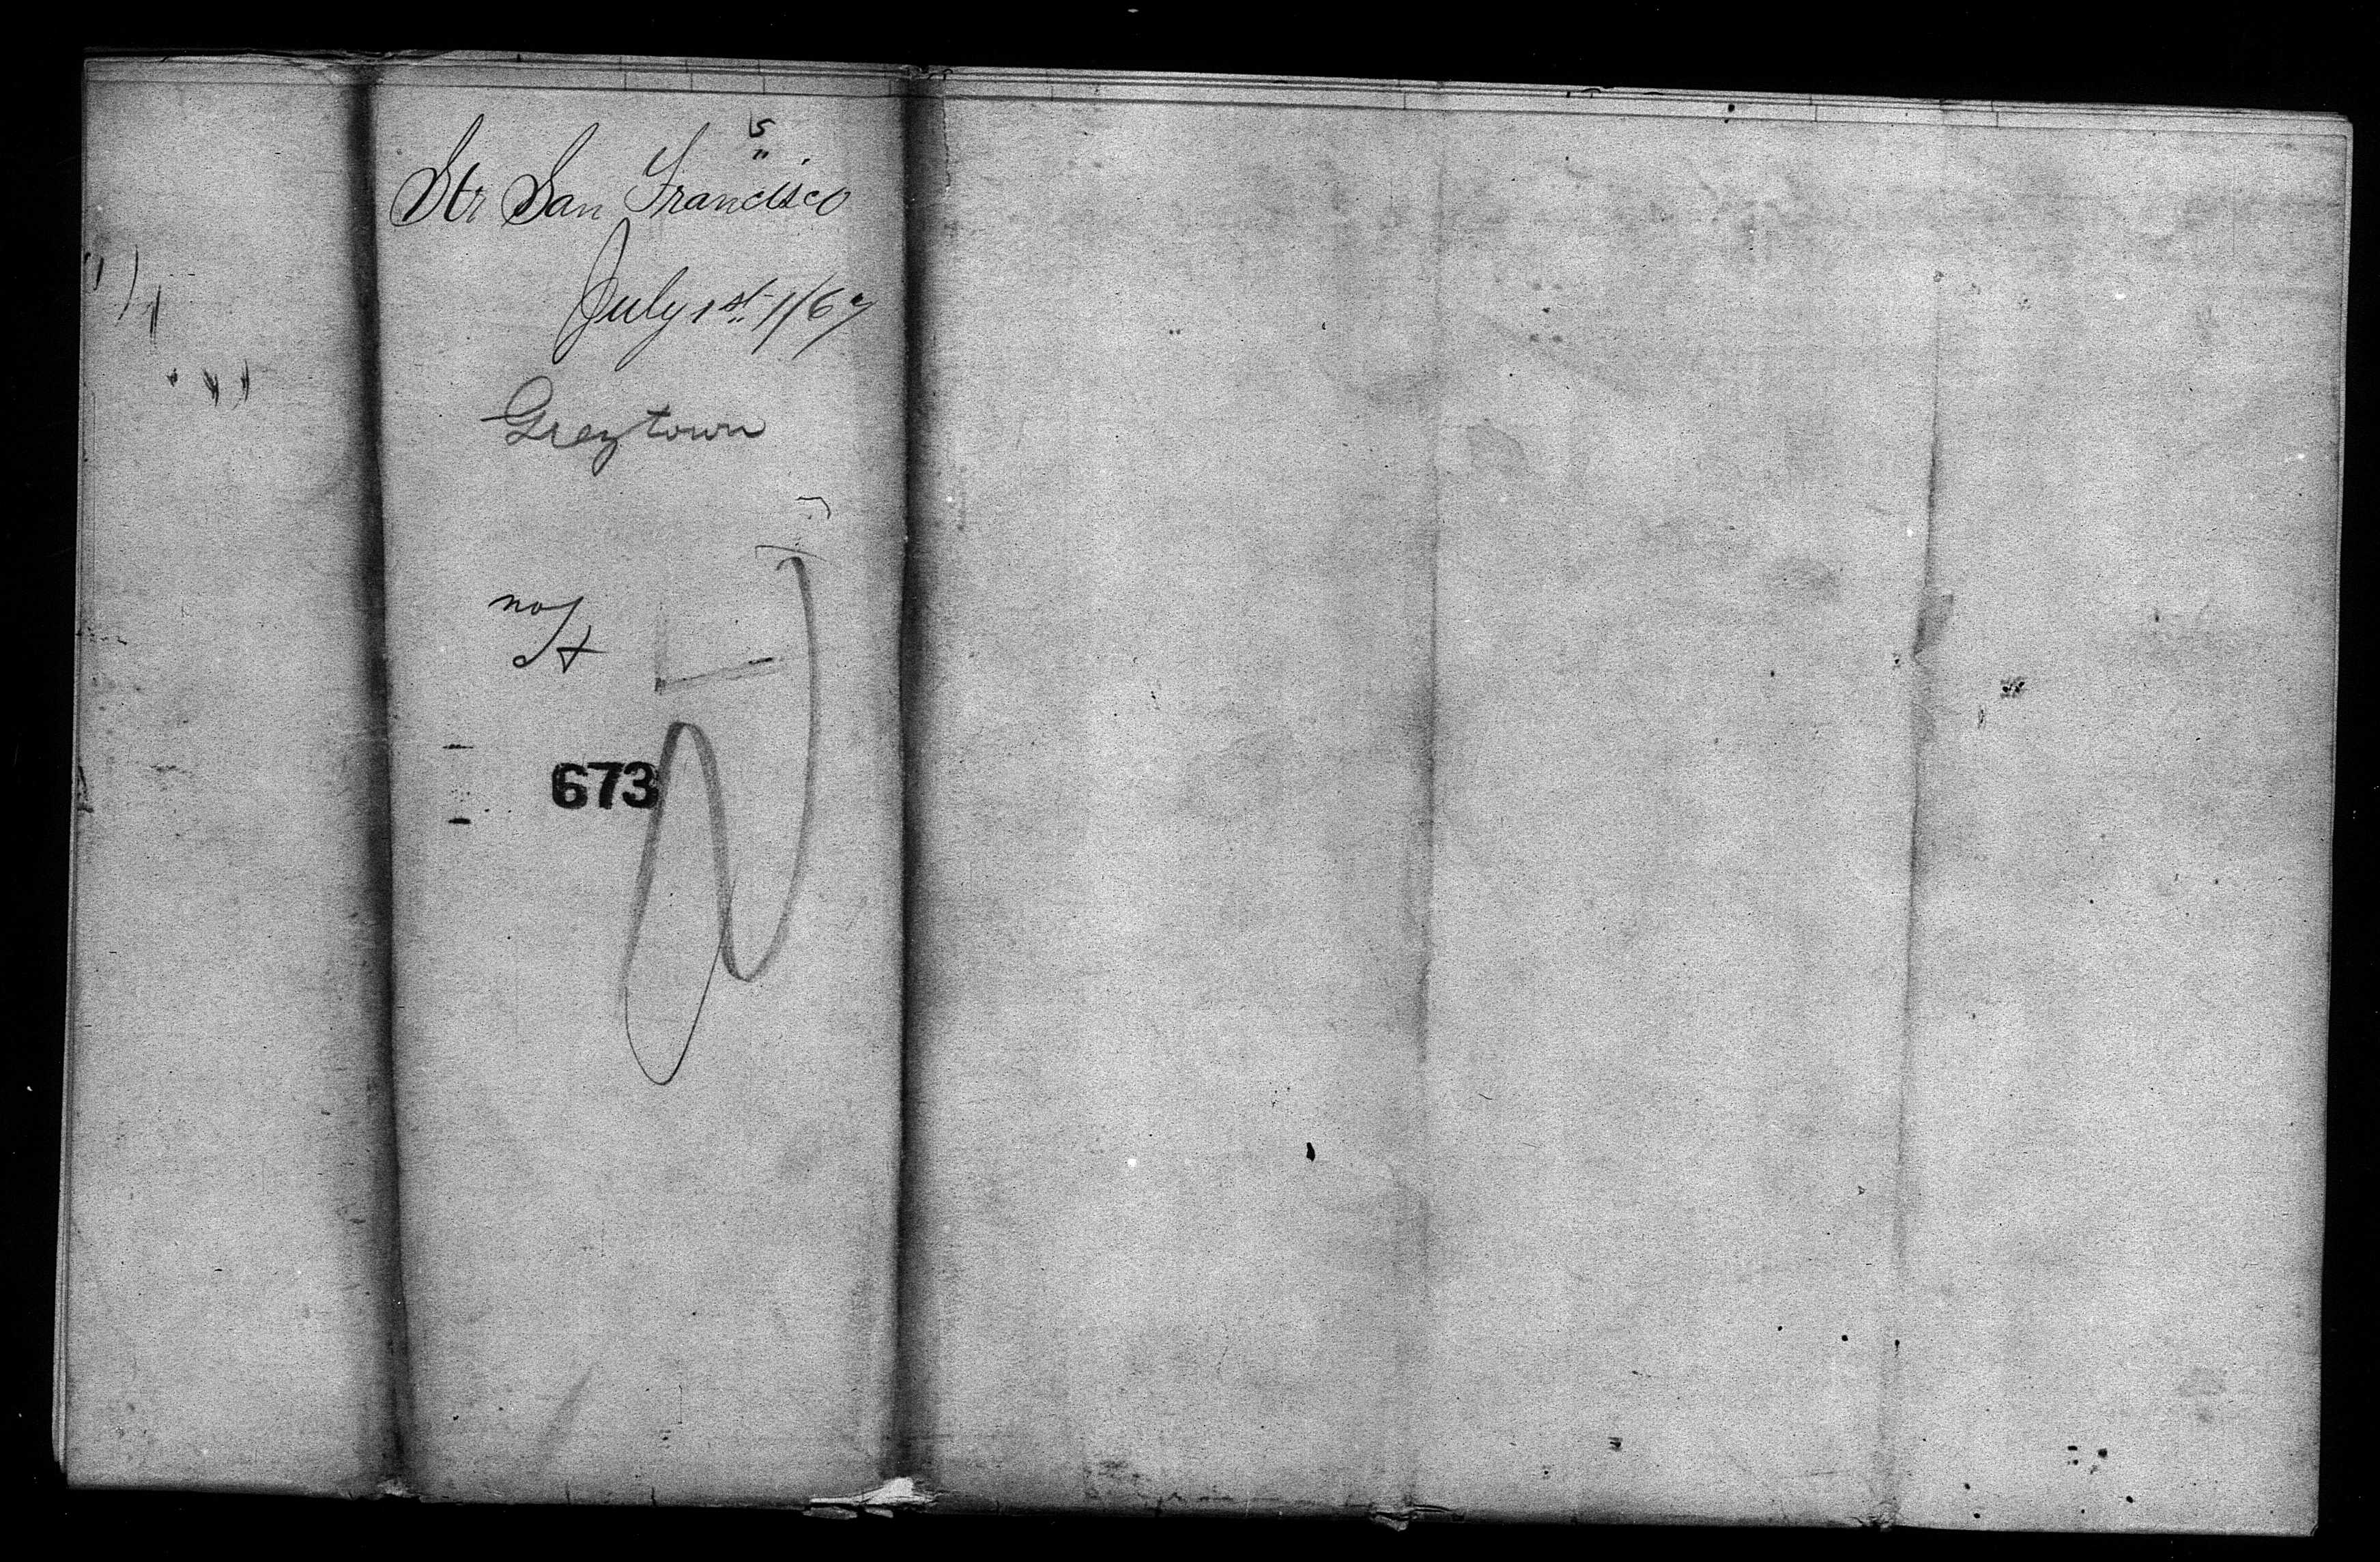 5
"
Str San Francisco
July 1st 1867
Greytown
no
673